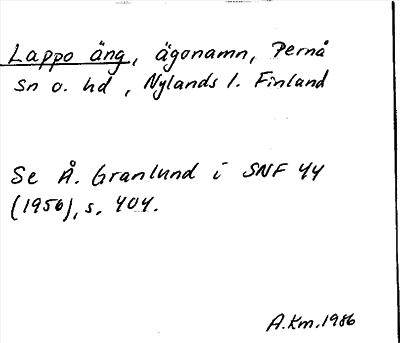 Lappo äng, ägonamn, Pernå
sn o. hd, Nylands l. Finland
Se Å. Granlund i SNF 44
(1956), s. 404.
A.Km. 1986